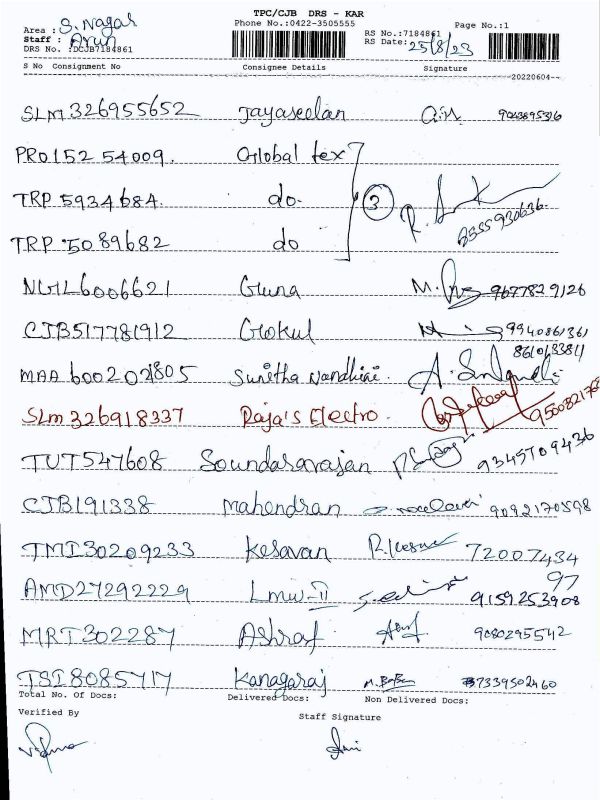 TPC/CJB DRS - KAR
Area : S. Nagar Phone No.:0422-3505555 Page No.:1
Staff : Arun RS No.:7184861
DRS No. :DCJB7184861 RS Date: 25/8/23
S No Consignment No Consignee Details Signature
--20220604--
SLM 326955652 Jayaseelan
PRO152 54009. Global tex
TRP 5934684. do. 3
8355930636
TRP 5089682 do
NGL6006621 Guna M. 9677829126
CJB517781912 Gokul 9940861361
MAA 600202805 Sunitha Nandhini.
SLM 326918337 Raja's Electro.
TUT547608 Soundararajan 9345709436
CJB191338 Mahendran 9092170598
TMI30209233 Kesavan 72007434
97
AMD27292229 Lmw-II 9159253908
MRT302287 Ashraf 9080295542
TSI8085717 Kanagaraj 7339502460
Total No. Of Docs: Delivered Docs: Non Delivered Docs:
Verified By Staff Signature